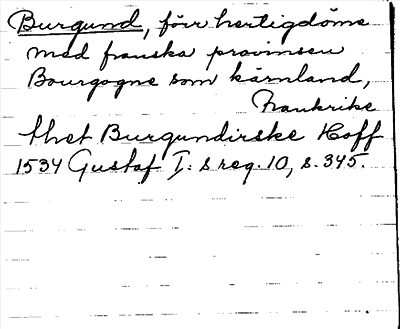 Burgund, förr hertigdöme
med franska provinsen
Bourgogne som kärnland,
Frankrike
thet Burgundirske Hoff
1534 Gustaf I: s reg. 10, s. 345.